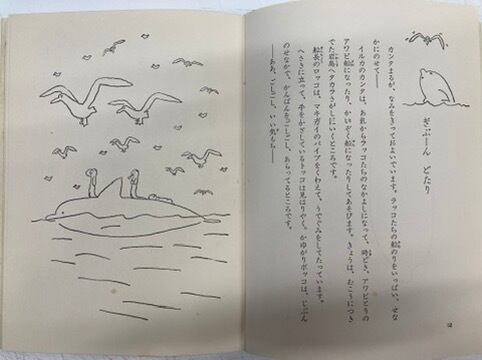 ぎぶーん どたり
カンタまるが、なみをきっておよいでいます。ラッコたちの船のりをいっぱい、せな
かにのせて――
イルカのカンタは、あれからラッコたちのなかよしになって、時どき、アワビとりの
アワビ船になったり、かいぞく船になったりしてあそびます。きょうは、むこうにつき
でた岩島へタカラさがしにいくところです。
船長のロッコは、マキガイのパイプをくわえて、うでぐみをしてたっています。
へさきに立って、手をかざしているトッコは見はりやく。かゆがりポッコは、じぶん
のせなかで、かんぱんをごしごし、あらってるところです。
――ああ、ごしごし、いい気もち――